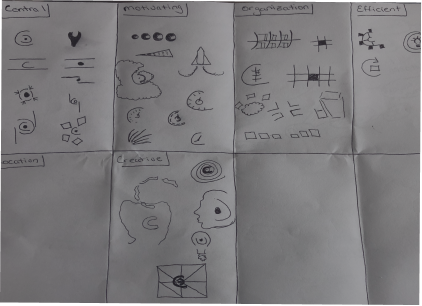 Control
motivating
organization
Efficient
ocation
Creative